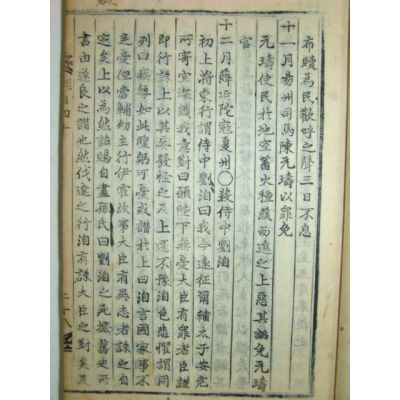 布贖為民歡呼之聲三日不息
十一月易州司馬陳元璹以罪免
元璹使民於地室蓄火種蔬而進之上惡其謟免元璹
官
十二月薛延陀寇夏州○殺侍中劉洎
初上將東行謂侍中劉洎曰我今遠征爾輔太子安危
所寄宜深識我意對曰願陛下無憂大臣有罪者臣謹
即行誅上以其妄發怪之上還不豫洎色悲懼謂同
列曰疾勢如此聖躬可憂或譖於上曰洎言國家事不
足憂但當輔幼主行伊霍故事大臣有異志者誅之自
定矣上以為然詔賜自盡孫氏曰劉洎之死據舊史所
書由遂良之譖也然伐遼之行洎有誅大臣之對矣及
二十八